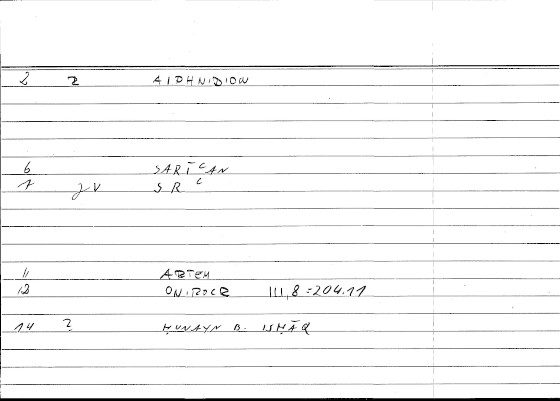 2 2 AIDHNIDION
6 SARĪᶜAN
7 gV SRᶜ
11 ARTEM
12 ONIROCR III,8=204.11
14 2 ḤUNAYN B. ISḤĀQ